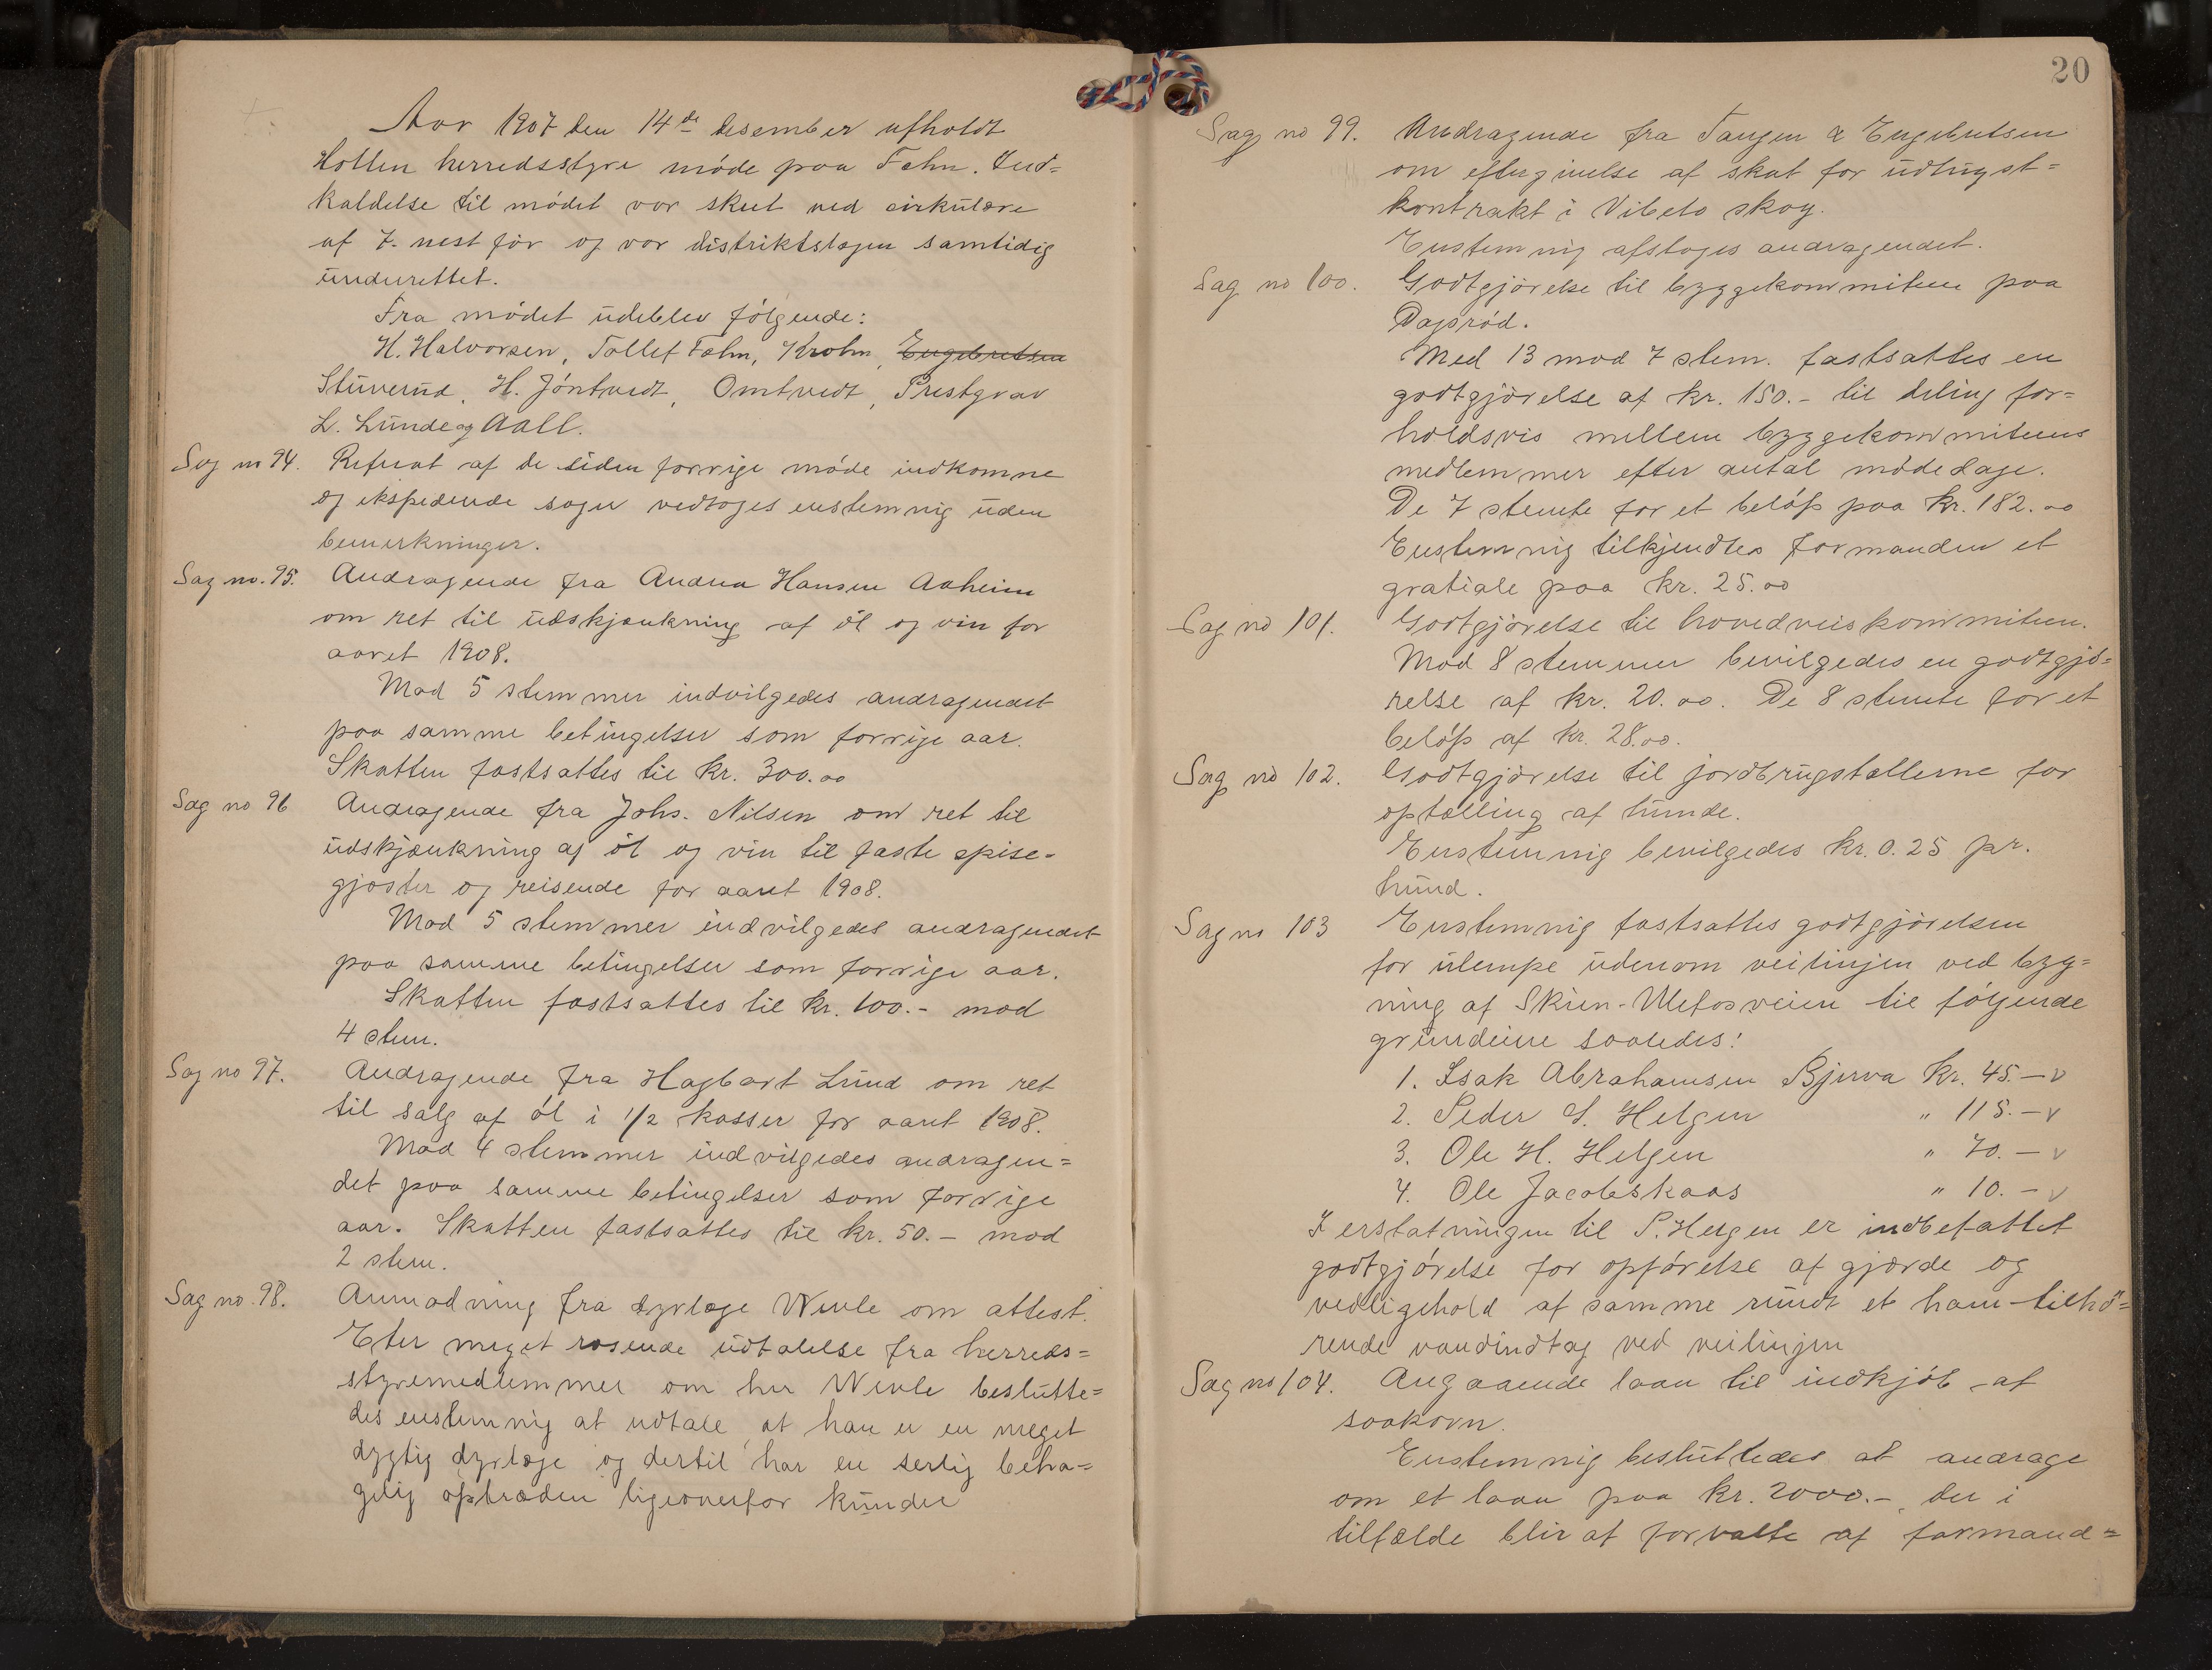 Aar 1907 den 14de desember afholdt
Hollen herredsstyre møde paa Fehn. Ind=
kaldelse til mødet var skeet ved cirkulære
af 7. nest før og var distriktslægen samtidig
underrettet.
Fra mødet udeblev følgende:
H. Halvorsen, Tollef Fehn, Krohn, Engebretsen
Stuverud, H. Jøntvedt, Omtvedt, Prestgrav
L. Lunde og Aall.
Sag no 94. Referat af de siden forrige møde indkomne
og ekspederede sager vedtoges enstemmig uden
bemerkninger.
Sag no. 95. Andragende fra Andrea Hansen Aaheim
om ret til udskjænkning af øl og vin for
aaret 1908.
Mod 5 stemmer indvilgedes andragendet
paa samme betingelser som forrige aar.
Skatten fastsattes til kr. 300.00
Sag no 96 Andragende fra Johs. Nilsen om ret til
udskjænkning af øl og vin til faste spise-
gjæster og reisende for aaret 1908.
Mod 5 stemmer indvilgedes andragendet
paa samme betingelser som forrige aar.
Skatten fastsattes til kr. 100.- mod
4 stem.
Sag no 97. Andragende fra Hagbart Lund om ret
til salg af øl i 1/2 kasser for aaret 1908.
Mod 4 stemmer indvilgedes andragen=
det paa samme betingelser som forrige
aar. Skatten fastsattes til kr. 50.- mod
2 stem.
Sag no. 98. Anmodning fra dyrlæge Wenle om attest.
Efter meget rosende udtalelse fra herreds=
styremedlemmer om hr Wenle beslutte=
des enstemmig at udtale at han er en meget
dygtig dyrlæge og dertil har en serlig beha=
gelig optræden ligeoverfor kunder
20
Sag no 99. Andragende fra Tangen & Engebretsen
om eftergivelse af skat for udhugst=
kontrakt i Vibeto skog.
Enstemmig afsloges andragendet.
Sag no 100. Godtgjørelse til byggekommiteen paa
Dagsrød.
Med 13 mod 7 stem. fastsattes en
godtgjørelse af kr. 150.- til deling for=
holdsvis mellem byggekommiteens
medlemmer efter antal møde dage.
De 7 stemte for et beløp paa kr. 182.00
Enstemmig tilkjendtes formanden et
gratiale paa kr. 25.00
Sag no 101. Godtgjørelse til hovedveiskommiteen.
Mod 8 stemmer bevilgedes en godtgjø=
relse af kr. 20.00. De 8 stemte for et
beløp af kr. 28.00.
Sag no 102. Godtgjørelse til jordbrugstællerne for
optælling af hunde.
Enstemmig bevilgedes kr. 0.25 pr.
hund.
Sag no 103 Enstemmig fastsattes godtgjørelsen
for ulempe udenom veilinjen ved byg=
ning af Skien-Ulefosveien til følgende
grundeiere saaledes:
1. Isak Abrahamsen Bjerva kr. 45.- v
2. Peder S. Helgen " 115.- v
3. Ole H. Helgen " 70.- v
4. Ole Jacobskaas " 10.- v
I erstatningen til P. Helgen er indbefattet
godtgjørelse for opførelse af gjærde og
vedligehold af samme rundt et ham tilhø=
rende vandindtag ved veilinjen
Sag no 104. Angaaende laan til indkjøb af
saakorn.
Enstemmig besluttedes at andrage
om et laan paa kr. 2000.-, der i
tilfælde blir at forvalte af formand=